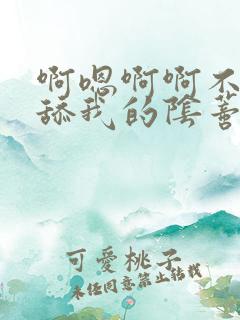 啊嗯啊啊不
舔我的陰蒂
可愛桃子
未经同意禁止转载